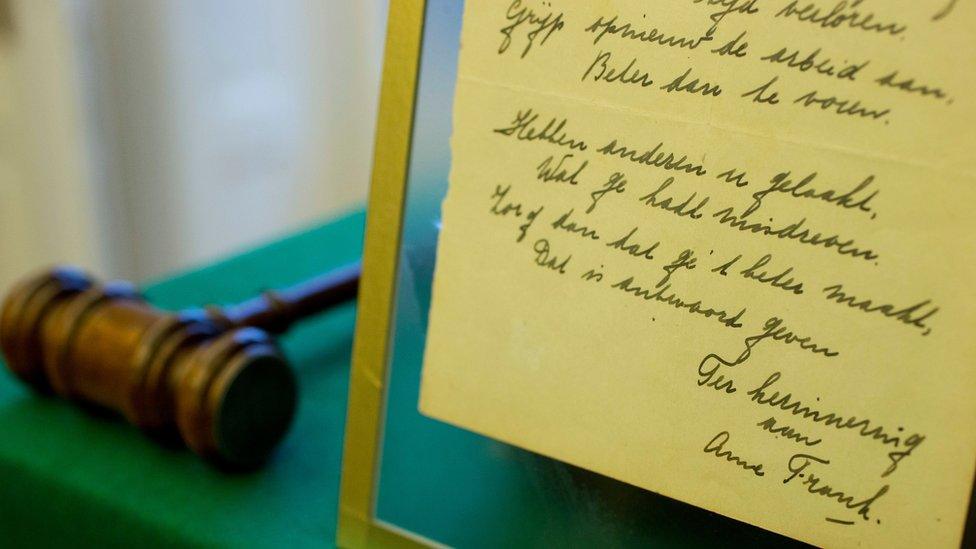 tijd verloren.
Grijp opnieuw de arbeid aan.
Beter dan te voren.
Hebben anderen u gelaakt,
Wat ge hadt misdreven.
Zorg dan dat ge 't beter maakt,
Dat is antwoord geven
Ter herinnering
aan
Anne Frank.